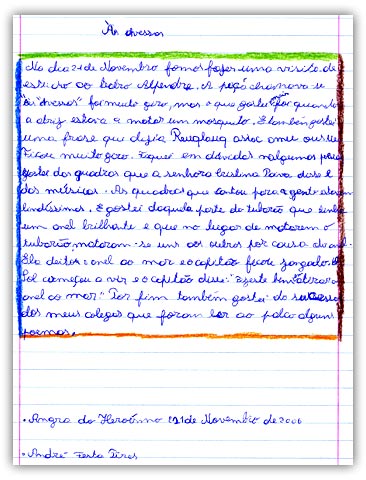 Às avessas
No dia 21 de Novembro fomos fazer uma visita de
estudo ao Teatro Alpendre. A peça chamava-se
"Às avessas" foi muito giro, mas o que gostei foi quando
a atriz estava a matar um mosquito. E também gostei
uma frase que dizia
Ficou muito giro. Fiquei em dúvidas nalgumas partes
gostei dos quadros que a senhora Cristina disse e
das músicas. As quadras que cantou para a gente estavam
lindíssimas. E gostei daquela parte do tubarão que tinha
um anel brilhante e que no lugar de matarem o
tubarão mataram-se uns aos outros por causa do anel.
Ela deitou o anel ao mar e o capitão ficou zangado. O
Sol começou a vir e o capitão disse: "Espete bem
anel ao mar" Por fim também gostei do sucesso
dos meus colegas que foram ler ao palco alguns
poemas.
. Angra do Heroísmo 21 de Novembro de 2006
. André Pires